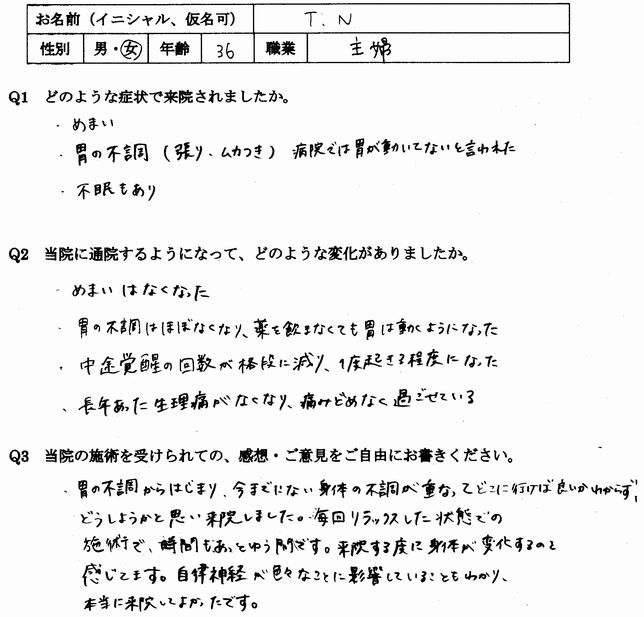 お名前（イニシャル、仮名可） T.N
性別 男・女 年齢 36 職業 主婦
Q1 どのような症状で来院されましたか。
・めまい
・胃の不調（張り、ムカつき）病院では胃が動いてないと言われた
・不眠もあり
Q2 当院に通院するようになって、どのような変化がありましたか。
・めまいはなくなった
・胃の不調はほぼなくなり、薬を飲まなくても胃は動くようになった
・中途覚醒の回数が格段に減り、1度起きる程度になった
・長年あった生理痛がなくなり、痛みどめなく過ごせている
Q3 当院の施術を受けられての、感想・ご意見をご自由にお書きください。
・胃の不調からはじまり、今までにない身体の不調が重なってどこに行けば良いかわからず、
どうしようかと思い来院しました。毎回リラックスした状態での
施術で、時間もあっとゆう間です。来院する度に身体が変化するのを
感じてます。自律神経が色々なことに影響していることもわかり、
本当に来院してよかったです。